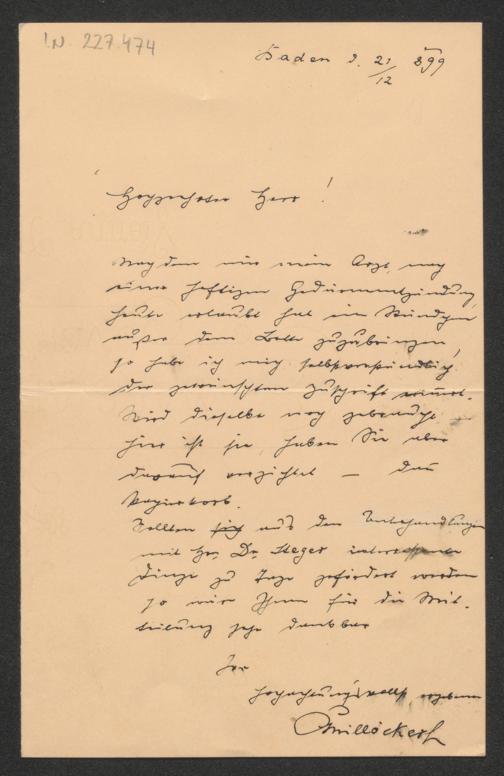 I.N. 227.474
Baden d. 21/12 899
Hochgeehrter Herr!
Nachdem mir mein Arzt nach
einer heftigen Gedärmentzündung
heute erlaubt hat ein Stündchen
außer dem Bette zuzubringen,
so habe ich mich selbstverständlich
der gewünschten Zuschrift
Wird dieselbe noch gebraucht
hier ist sie, haben Sie aber
darauf verzichtet — dem
Papierkorb.
Sollten sich aus den
mit Hr. Dr. Steger interessante
Dinge zu Tage gefördert werden
so wär Ihnen für die Mit-
teilung sehr dankbar
Ihr
hochachtungsvollst ergebener
CMillöcker